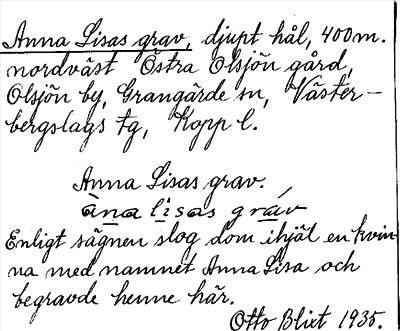 Anna Lisas grav, djupt hål, 400 m.
nordväst Östra Olsjön gård,
Olsjön by, Grangärde sn, Väster-
bergslags tg, Kopp l.
Anna Lisas grav.
àna lisas gráv
Enligt sägnen slog dom ihjäl en kvin
na med namnet Anna Lisa och
begravde henne här.
Otto Blixt 1935.